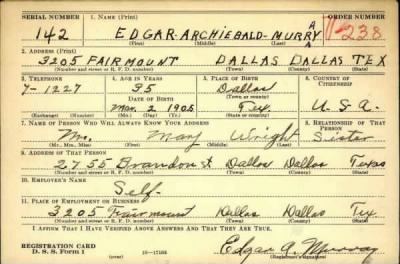 SERIAL NUMBER 1. NAME (Print) ORDER NUMBER
142 EDGAR-ARCHIEBALD-MURRAY 11-238
(First) (Middle) (Last)
2. ADDRESS (Print)
3205 FAIRMOUNT DALLAS DALLAS TEX
(Number and street or R. F. D. number) (Town) (County) (State)
3. TELEPHONE 4. AGE IN YEARS 5. PLACE OF BIRTH 6. COUNTRY OF CITIZENSHIP
7-1227 35 Dallas
DATE OF BIRTH
Mar. 2 1905 Tex. U.S.A.
(Exchange) (Number) (Mo.) (Day) (Yr.) (State or country)
7. NAME OF PERSON WHO WILL ALWAYS KNOW YOUR ADDRESS 8. RELATIONSHIP OF THAT PERSON
Mrs. Mary Wright Sister
(Mr., Mrs., Miss) (First) (Middle) (Last)
9. ADDRESS OF THAT PERSON
2755 Brandon St Dallas Dallas Texas
(Number and street or R. F. D. number) (Town) (County) (State)
10. EMPLOYER'S NAME
Self-
11. PLACE OF EMPLOYMENT OR BUSINESS
3205 Fairmount Dallas Dallas Tex
(Number and street or R. F. D. number) (Town) (County) (State)
I AFFIRM THAT I HAVE VERIFIED ABOVE ANSWERS AND THAT THEY ARE TRUE.
REGISTRATION CARD
D. S. S. Form 1 16-17105 Edgar A. Murray
(Registrant's signature)